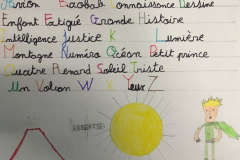 Avion Baobab Connaissance Dessine
Enfant Fatigué Grande Histoire
Intelligence Justice K Lumière
Montagne Numéro Océan Petit prince
Quatre Renard Soleil Triste
Un Volcan W X Yeux Z